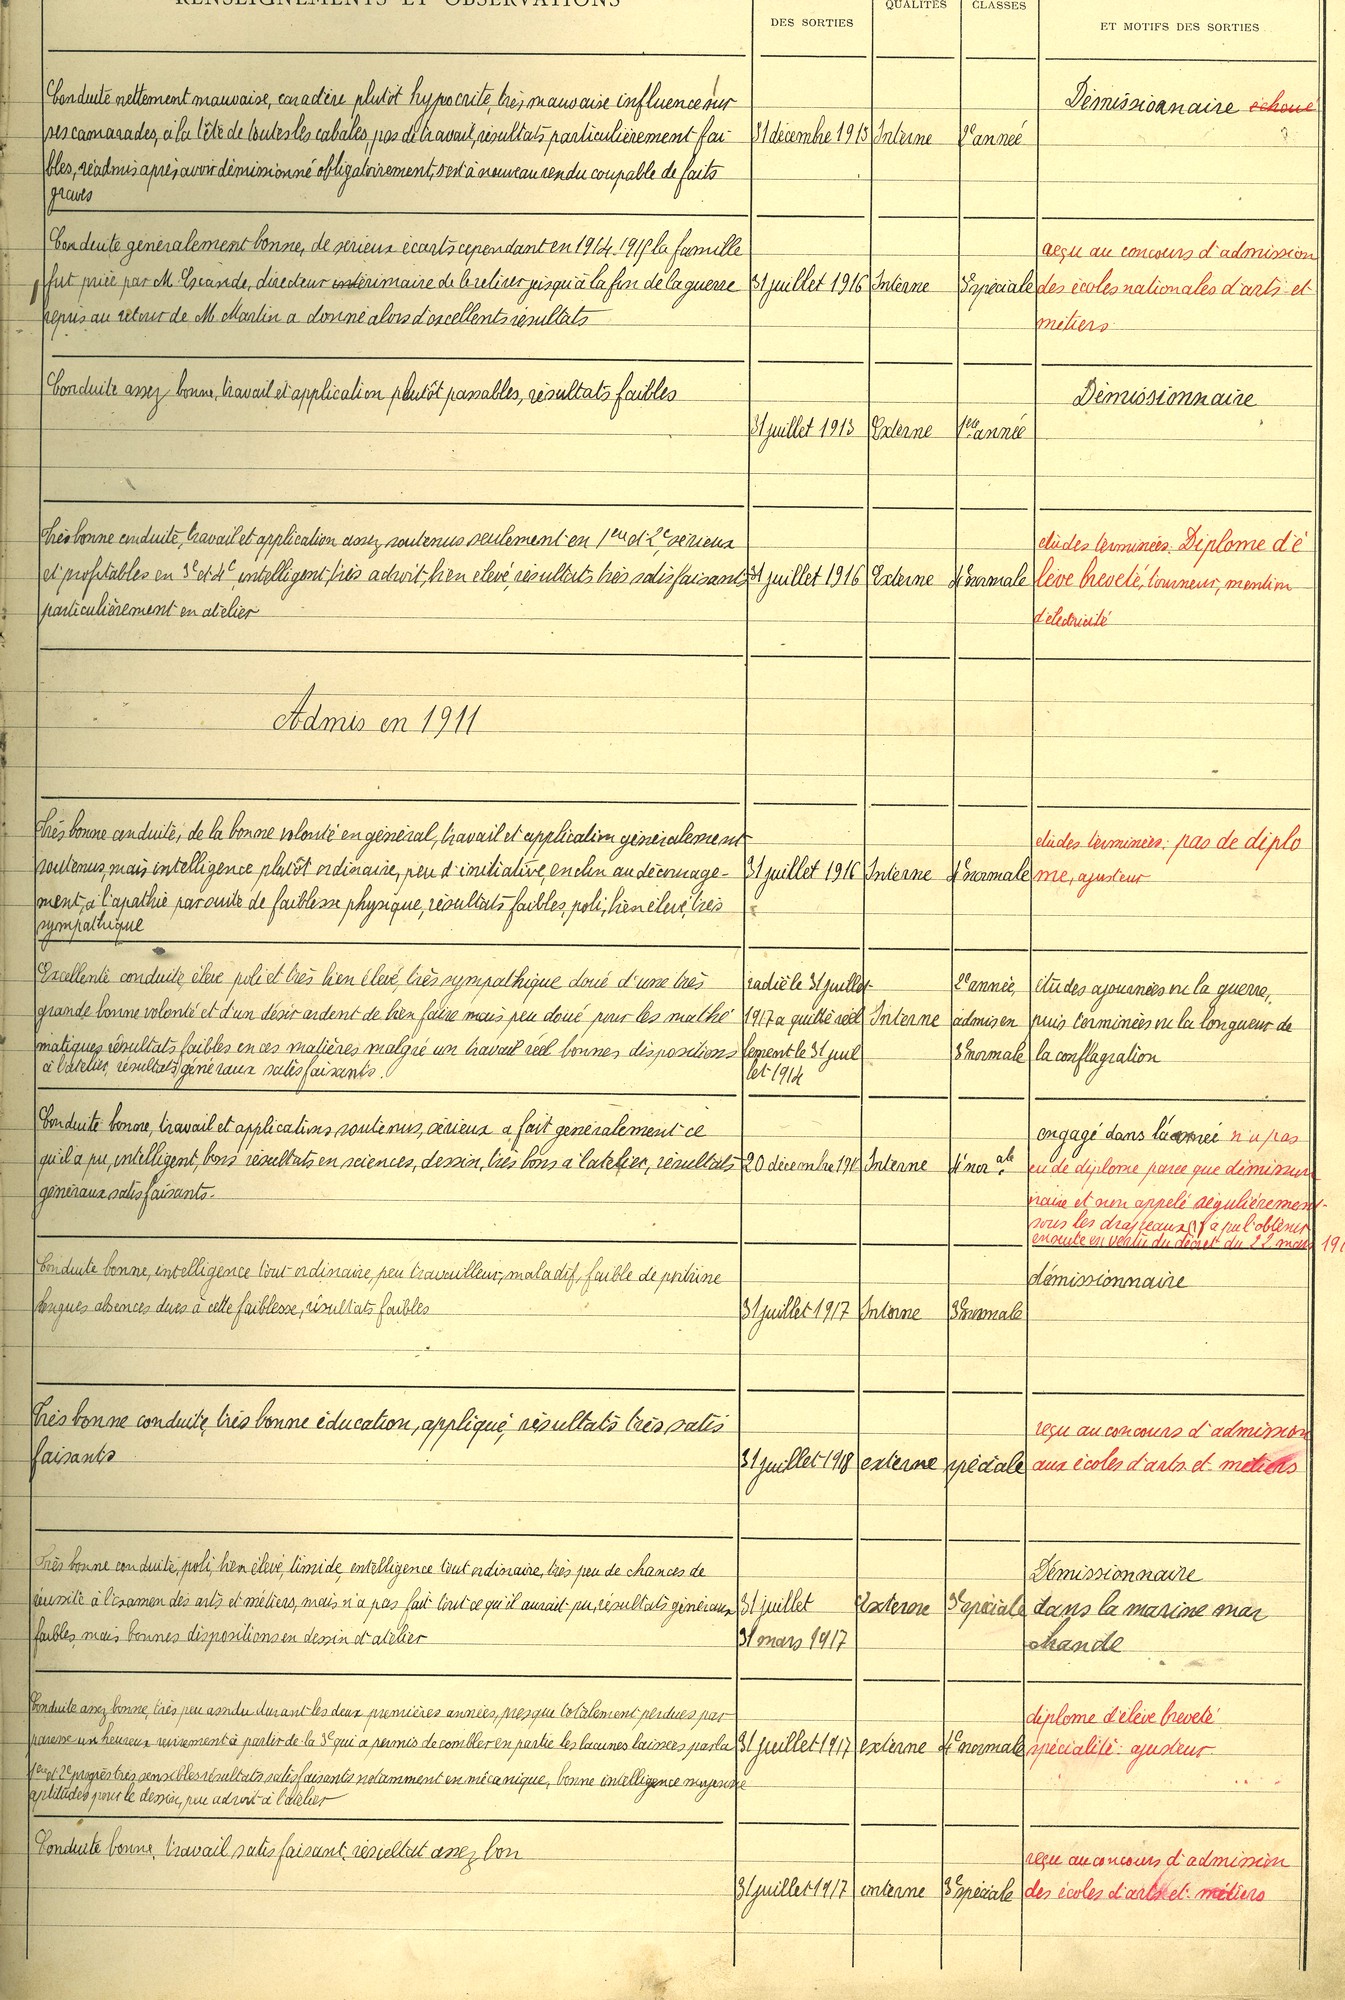 RENSEIGNEMENTS ET OBSERVATIONS
DES SORTIES
QUALITÉS
CLASSES
ET MOTIFS DES SORTIES
Conduite nettement mauvaise, caractère plutôt hypocrite, très mauvaise influence sur
ses camarades, à la tête de toutes les cabales, pas de travail, résultats particulièrement fai-
bles, réadmis après avoir démissionné obligatoirement, s'est à nouveau rendu coupable de faits
graves
31 décembre 1913
Interne
2e année
Démissionnaire échoué
Conduite généralement bonne, de sérieux écarts cependant en 1914-1915 la famille
fut priée par M. Escande, directeur intérimaire de le retirer jusqu'à la fin de la guerre
repris au retour de M Martin a donné alors d'excellents résultats
31 juillet 1916
Interne
3e spéciale
reçu au concours d'admission
des écoles nationales d'arts et
métiers
Conduite assez bonne, travail et application plutôt passables, résultats faibles
31 juillet 1913
Externe
1ère année
Démissionnaire
Très bonne conduite, travail et application assez soutenus seulement en 1ère et 2e, sérieux
et profitables en 3e et 4e, intelligent, très adroit, bien élevé, résultats très satisfaisants
particulièrement en atelier
31 juillet 1916
Externe
4e normale
études terminées. Diplome d'é
lève breveté, tourneur, mention
d'électricité
Admis en 1911
Très bonne conduite, de la bonne volonté en général, travail et application généralement
soutenus, mais intelligence plutôt ordinaire, peu d'initiative, enclin au décourage-
ment, à l'apathie par suite de faiblesse physique, résultats faibles, poli, bien élevé, très
sympathique
31 juillet 1916
Interne
4e normale
études terminées; pas de diplo
me, ajusteur
Excellente conduite, élève poli et très bien élevé, très sympathique doué d'une très
grande bonne volonté et d'un désir ardent de bien faire mais peu doué pour les mathé
matiques résultats faibles en ces matières malgré un travail réel bonnes dispositions
à l'atelier, résultats généraux satisfaisants.
radié le 31 juillet
1917 a quitté réel
lement le 31 juil
let 1914
Interne
2e année,
admis en
3e normale
études ajournées vu la guerre,
puis terminées vu la longueur de
la conflagration
Conduite bonne, travail et applications soutenus, sérieux a fait généralement ce
qu'il a pu, intelligent, bons résultats en sciences, dessin, très bons à l'atelier, résultats
généraux satisfaisants.
20 décembre
Interne
4e nor.ale
engagé dans l'armée n'a pas
eu de diplome parce que démission
naire et non appelé régulièrement
sous les drapeaux (1) a pu l'obtenir
ensuite en vertu du décret du 22 mars
Conduite bonne, intelligence tout ordinaire, peu travailleur, maladif, faible de poitrine
longues absences dues à cette faiblesse, résultats faibles
31 juillet 1917
Interne
3e normale
démissionnaire
Très bonne conduite, très bonne éducation, appliqué, résultats très satis
faisants
31 juillet 1918
externe
spéciale
reçu au concours d'admission
aux écoles d'arts et métiers
Très bonne conduite, poli, bien élevé, timide, intelligence tout ordinaire, très peu de chances de
réussite à l'examen des arts et métiers, mais n'a pas fait tout ce qu'il aurait pu, résultats généraux
faibles, mais bonnes dispositions en dessin et atelier
31 juillet
31 mars 1917
Externe
3e spéciale
Démissionnaire
dans la marine mar
chande
Conduite assez bonne, très peu assidu durant les deux premières années, presque totalement perdues par
paresse un heureux revirement à partir de la 3e qui a permis de combler en partie les lacunes laissées par la
1ère et 2e progrès très sensibles résultats satisfaisants notamment en mécanique, bonne intelligence moyenne
aptitudes pour le dessin, peu adroit à l'atelier
31 juillet 1917
externe
4e normale
diplome d'élève breveté
spécialité: ajusteur
Conduite bonne, travail satisfaisant, résultat assez bon
31 juillet 1917
interne
3e spéciale
reçu au concours d'admission
des écoles d'arts et métiers